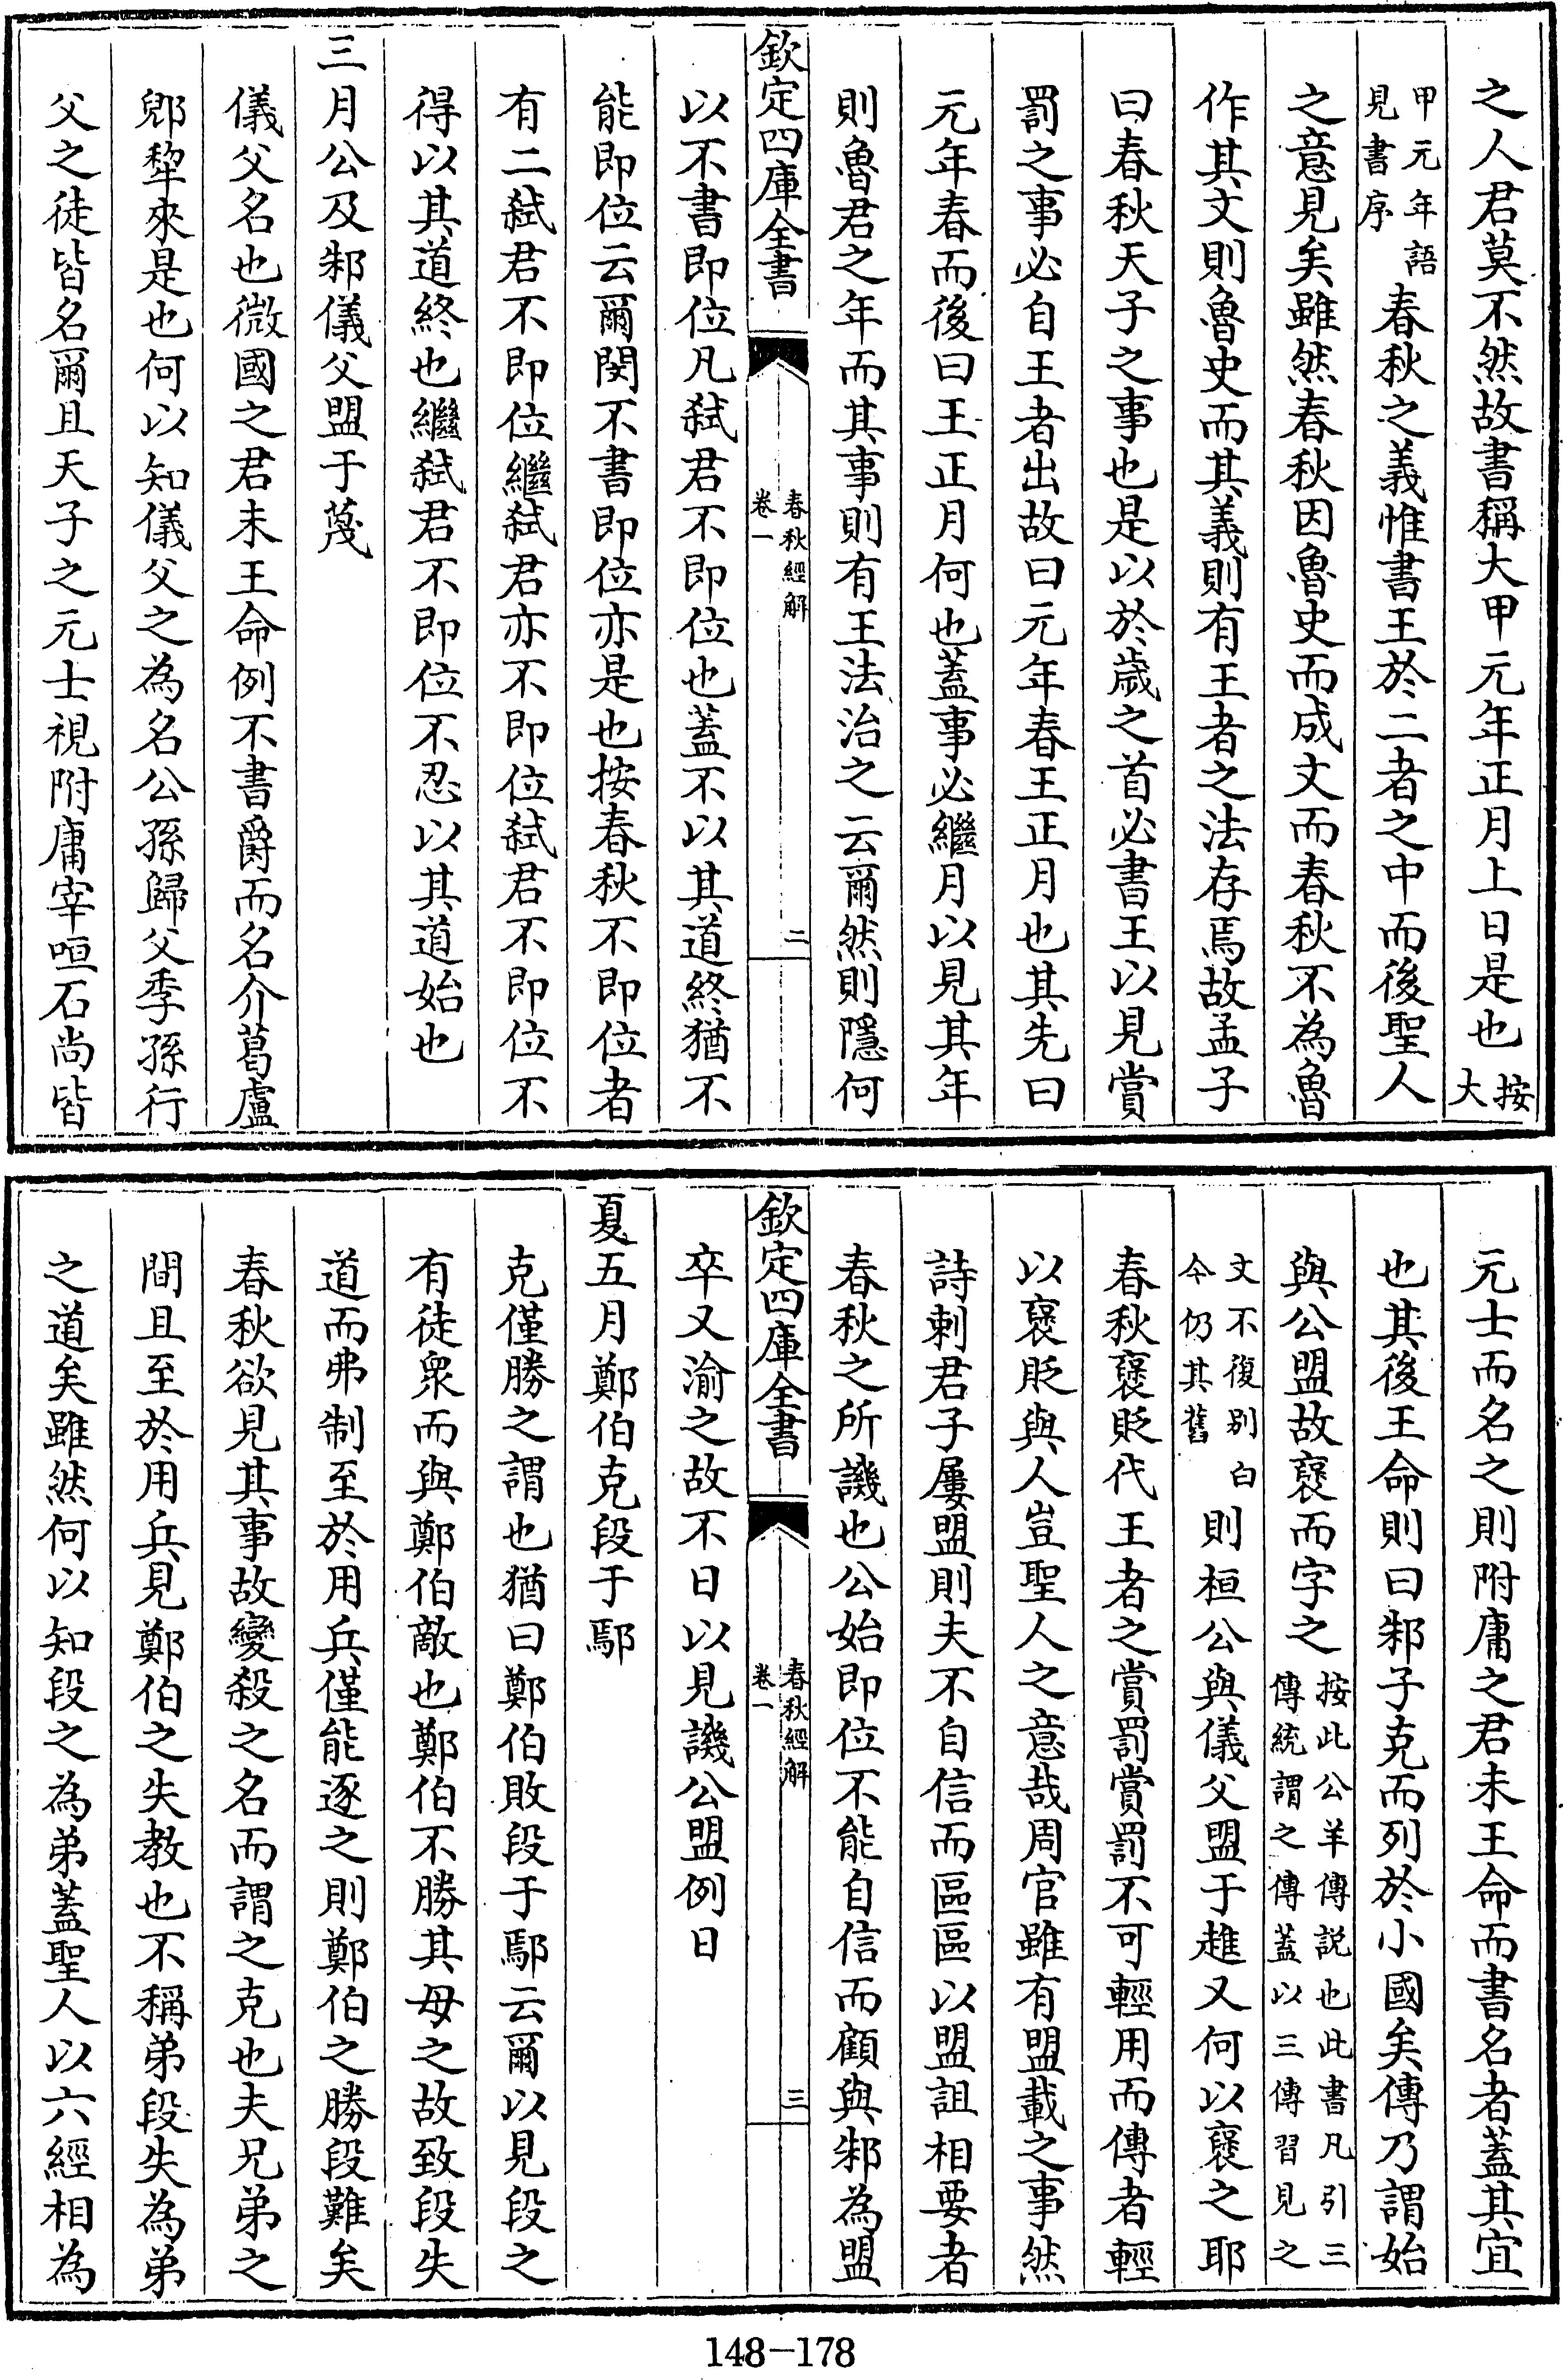 之人君莫不然故書稱大甲元年正月上日是也按大
甲元年語見書序春秋之義惟書王於二者之中而後聖人
之意見矣雖然春秋因魯史而成文而春秋不為魯
作其文則魯史而其義則有王者之法存焉故孟子
曰春秋天子之事也是以於歲之首必書王以見賞
罰之事必自王者出故曰元年春王正月也其先曰
元年春而後曰王正月何也蓋事必繼月以見其年
則魯君之年而其事則有王法治之云爾然則隱何
欽定四庫全書
春秋經解
卷一
二
以不書即位凡弑君不即位也蓋不以其道終猶不
能即位云爾閔不書即位亦是也按春秋不即位者
有二弑君不即位繼弑君亦不即位弑君不即位不
得以其道終也繼弑君不即位不忍以其道始也
三月公及邾儀父盟于蔑
儀父名也微國之君未王命例不書爵而名介葛盧
郳犂來是也何以知儀父之為名公孫歸父季孫行
父之徒皆名爾且天子之元士視附庸宰咺石尚皆
元士而名之則附庸之君未王命而書名者蓋其宜
也其後王命則曰邾子克而列於小國矣傳乃謂始
與公盟故褒而字之按此公羊傳說也此書凡引三傳統謂之傳蓋以三傳習見之
文不復别白今仍其舊則桓公與儀父盟于趡又何以褒之耶
春秋褒貶代王者之賞罰賞罰不可輕用而傳者輕
以褒貶與人豈聖人之意哉周官雖有盟載之事然
詩刺君子屢盟則夫不自信而區區以盟詛相要者
春秋之所譏也公始即位不能自信而顧與邾為盟
欽定四庫全書
春秋經解
卷一
三
卒又渝之故不日以見譏公盟例日
夏五月鄭伯克段于鄢
克僅勝之謂也猶曰鄭伯敗段于鄢云爾以見段之
有徒衆而與鄭伯敵也鄭伯不勝其母之故致段失
道而弗制至於用兵僅能逐之則鄭伯之勝段難矣
春秋欲見其事故變殺之名而謂之克也夫兄弟之
間且至於用兵見鄭伯之失教也不稱弟段失為弟
之道矣雖然何以知段之為弟蓋聖人以六經相為
148-178